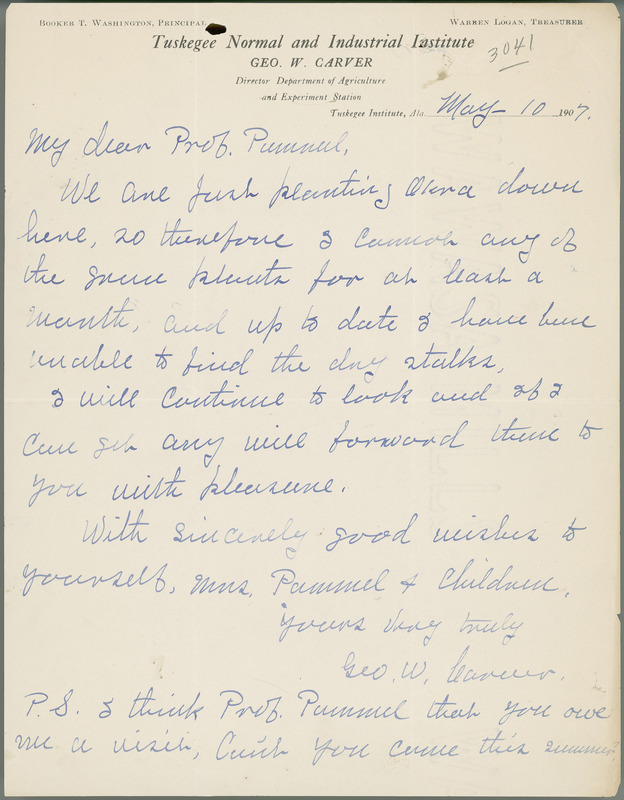 Booker T. Washington, Principal
Warren Logan, Treasurer
Tuskegee Normal and Industrial Institute
3041
GEO. W. CARVER
Director Department of Agriculture
and Experiment Station
Tuskegee Institute, Ala. May- 10 1907.
My dear Prof. Pammel,
We are just planting Okra down
here, so therefore I cannot any of
the green plants for at least a
month, and up to date I have been
unable to find the dry stalks,
I will continue to look and if I
can get any will forward them to
you with pleasure.
With sincerely good wishes to
yourself, Mrs. Pammel & Children,
Yours very truly
Geo. W. Carver.
P.S. I think Prof. Pammel that you owe
me a visit, Can't you come this summer?